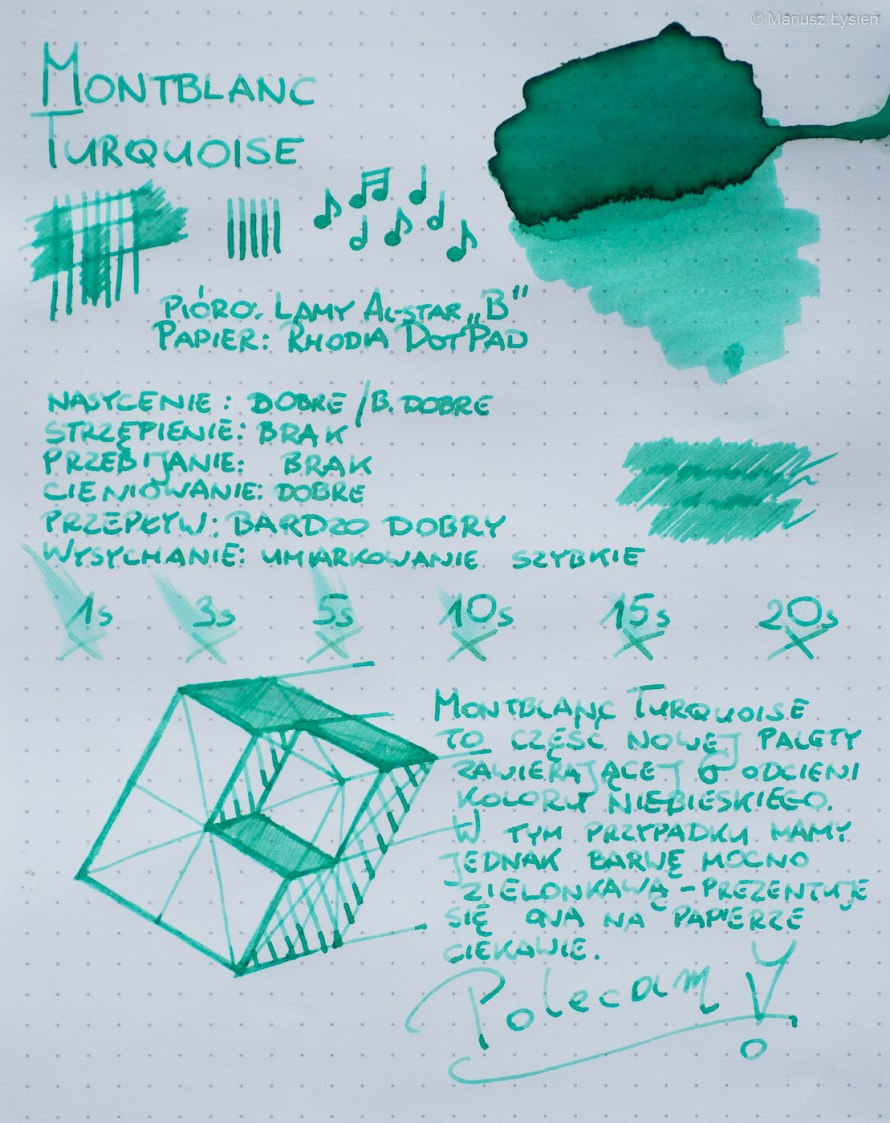 © Mariusz Łysień
MONTBLANC
TURQUOISE
PIÓRO: LAMY AL-STAR „B”
PAPIER: RHODIA DOTPAD
NASYCENIE: DOBRE / B. DOBRE
STRZĘPIENIE: BRAK
PRZEBIJANIE: BRAK
CIENIOWANIE: DOBRE
PRZEPŁYW: BARDZO DOBRY
WYSYCHANIE: UMIARKOWANIE SZYBKIE
1s 3s 5s 10s 15s 20s
MONTBLANC TURQUOISE
TO CZĘŚĆ NOWEJ PALETY
ZAWIERAJĄCEJ 6 ODCIENI
KOLORU NIEBIESKIEGO.
W TYM PRZYPADKU MAMY
JEDNAK BARWĘ MOCNO
ZIELONKAWĄ – PREZENTUJE
SIĘ ONA NA PAPIERZE
CIEKAWIE.
Polecam!